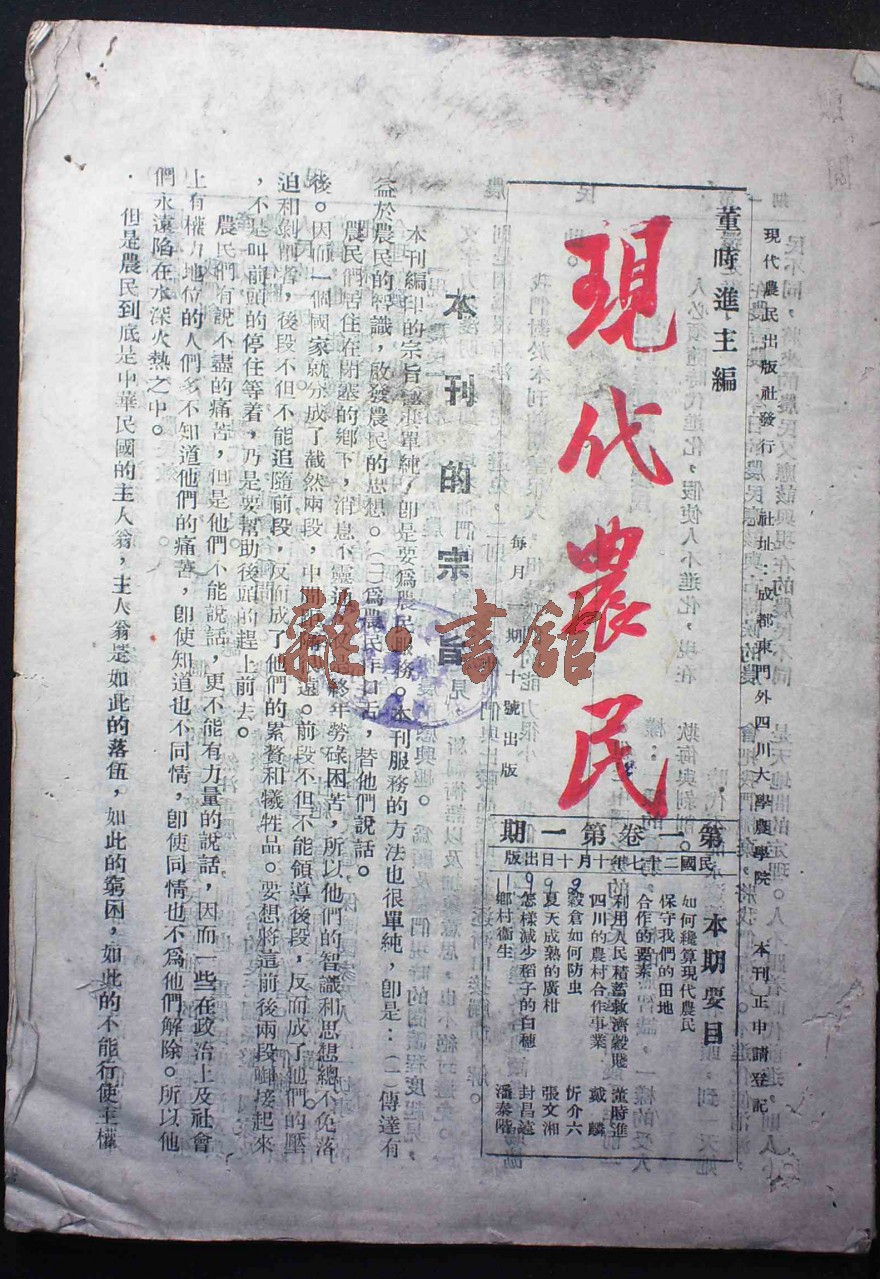 現代農民出版社發行 社址：成都東門外四川大學農學院 本刊正申請登記
董時進主編
現代農民
每月一期 十號出版
第一卷第一期
民國二十七年十月十日出版
本期要目
如何纔算現代農民
保守我們的田地
合作的要素
利用人民積蓄救濟穀賤 董時進
四川的農村合作事業 戴麟
穀倉如何防虫 忻介六
夏天成熟的廣柑 張文湘
怎樣減少稻子的白穗 封昌遠
鄉村衞生 潘泰階
本刊的宗旨
本刊編印的宗旨極其單純，卽是要爲農民服務。本刊服務的方法也很單純，卽是：(一)傳達有
益於農民的智識，啟發農民的思想。(二)爲農民作口舌，替他們說話。
農民們居住在閉塞的鄉下，消息不靈通，又是終年勞碌困苦，所以他們的智識和思想總不免落
後。因而一個國家就分成了截然兩段，中間脫離很遠。前段不但不能領導後段，反而成了他們的壓
迫和剝削者，後段不但不能追隨前段，反而成了他們的累贅和犧牲品。要想將這前後兩段啣接起來
，不是叫前頭的停住等着，乃是要幫助後頭的趕上前去。
農民們有說不盡的痛苦，但是他們不能說話，更不能有力量的說話，因而一些在政治上及社會
上有權力地位的人們多不知道他們的痛苦，卽使知道也不同情，卽使同情也不爲他們解除。所以他
們永遠陷在水深火熱之中。
但是農民到底是中華民國的主人翁，主人翁是如此的落伍，如此的窮困，如此的不能行使主權
雜·書館